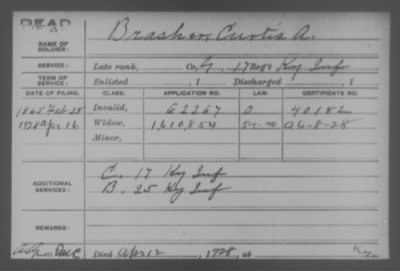 DEAD
NAME OF SOLDIER: Brasher, Curtis A.
SERVICE: Late rank, Co. G, 17 Reg't Ky Inf
TERM OF SERVICE: Enlisted , 1 Discharged , 1
DATE OF FILING. CLASS. APPLICATION NO. LAW. CERTIFICATE NO.
1865 Feb 28 Invalid, 62267 0 40182
1928 Apr 16 Widow, 1,610,854 A6-8-28
Minor,
ADDITIONAL SERVICES: C. 17 Ky Inf
B. 25 Ky Inf
REMARKS:
Died Apr 12, 1928, at Ky.